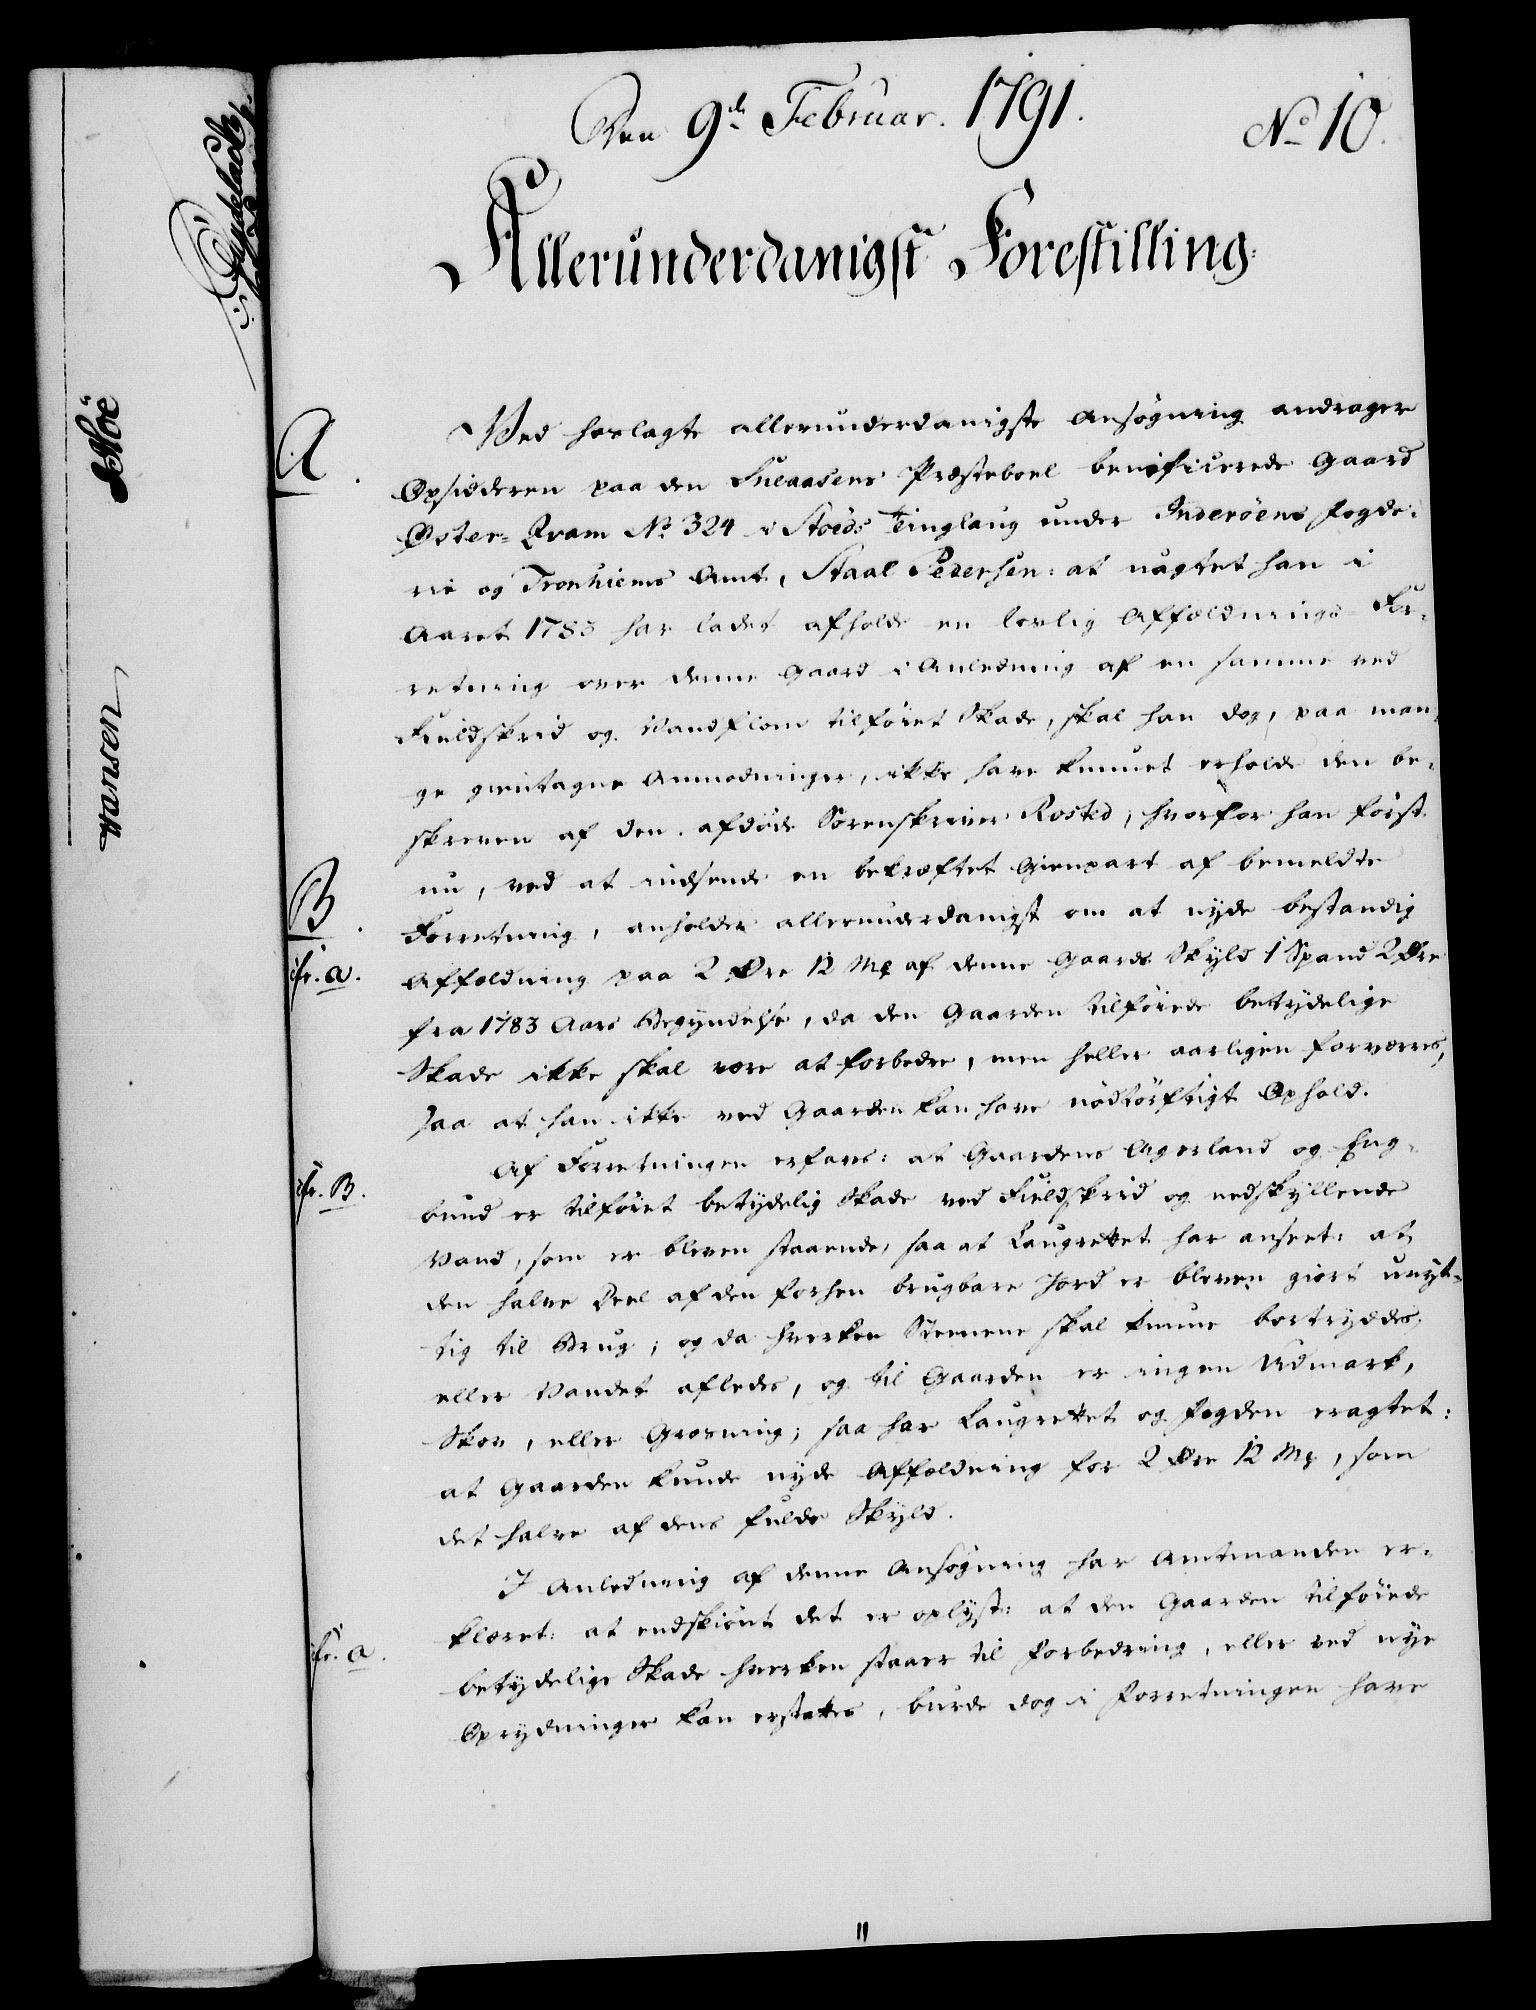 Den 9de Februar. 1791.
No 10.
Allerunderdanigst Forestilling.
A.
Ved hoslagte allerunderdanigste Ansøgning andrager
Opsidderen paa den Sneaasens Præsteboel beneficerede Gaard
Øster=Qvam No 324 i Stoeds Tinglaug under Inderöens Fogde-
rie og Tronhiems Amt, Staal Pedersen: at uagtet han i
Aaret 1783 har ladet afholde en lovlig Affældnings For-
retning over denne Gaard i Anledning af en samme ved
Fieldskrid og Vandflom tilföiet Skade, skal han dog, paa man-
ge gientagne Anmodninger, ikke have kunnet erholde den be-
skreven af den afdöde Sorenskriver Rosted; hvorfor han först
B.
nu, ved at indsende en bekræftet Gienpart af bemeldte
Forretning, anholder allerunderdanigst om at nyde bestandig
cfr. a.
Affældning paa 2 Øre 12 Mg af denne Gaards Skyld 1 Spand 2 Øre
fra 1783 Aars Begyndelse, da den Gaarden tilföiede betydelige
Skade ikke skal være at forbedre, men heller aarligen forværres,
saa at han ikke ved Gaarden kan have nödtörftigt Ophold.
Af Forretningen erfares: at Gaardens Agerland og Eng-
cfr. B.
bund er tilföiet betydelig Skade ved Fieldskrid og nedskyllende
Vand, som er bleven staaende, saa at Laugrettet har anseet: at
den halve Deel af den forhen brugbare Jord er bleven giort unyt-
tig til Brug; og da hverken Steenene skal kunne bortryddes,
eller Vandet afledes, og til Gaarden er ingen Udmark,
Skov, eller Græsning; saa har Laugrettet og Fogden eragtet:
at Gaarden kunde nyde Affældning for 2 Øre 12 Mg, som
det halve af dens fulde Skyld.
I Anledning af denne Ansøgning har Amtmanden er-
klæret: at endskiönt det er oplyst: at den Gaarden tilföiede
cfr. a.
betydelige Skade hverken staaer til Forbedring, eller ved nye
Oprydninger kan erstattes, burde dog i Forretningen have
11